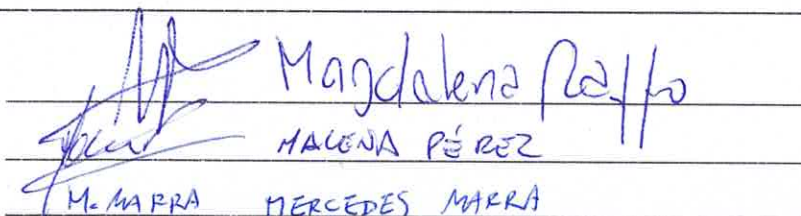 Magdalena Raffo
MALENA PÉREZ
M. MARRA MERCEDES MARRA